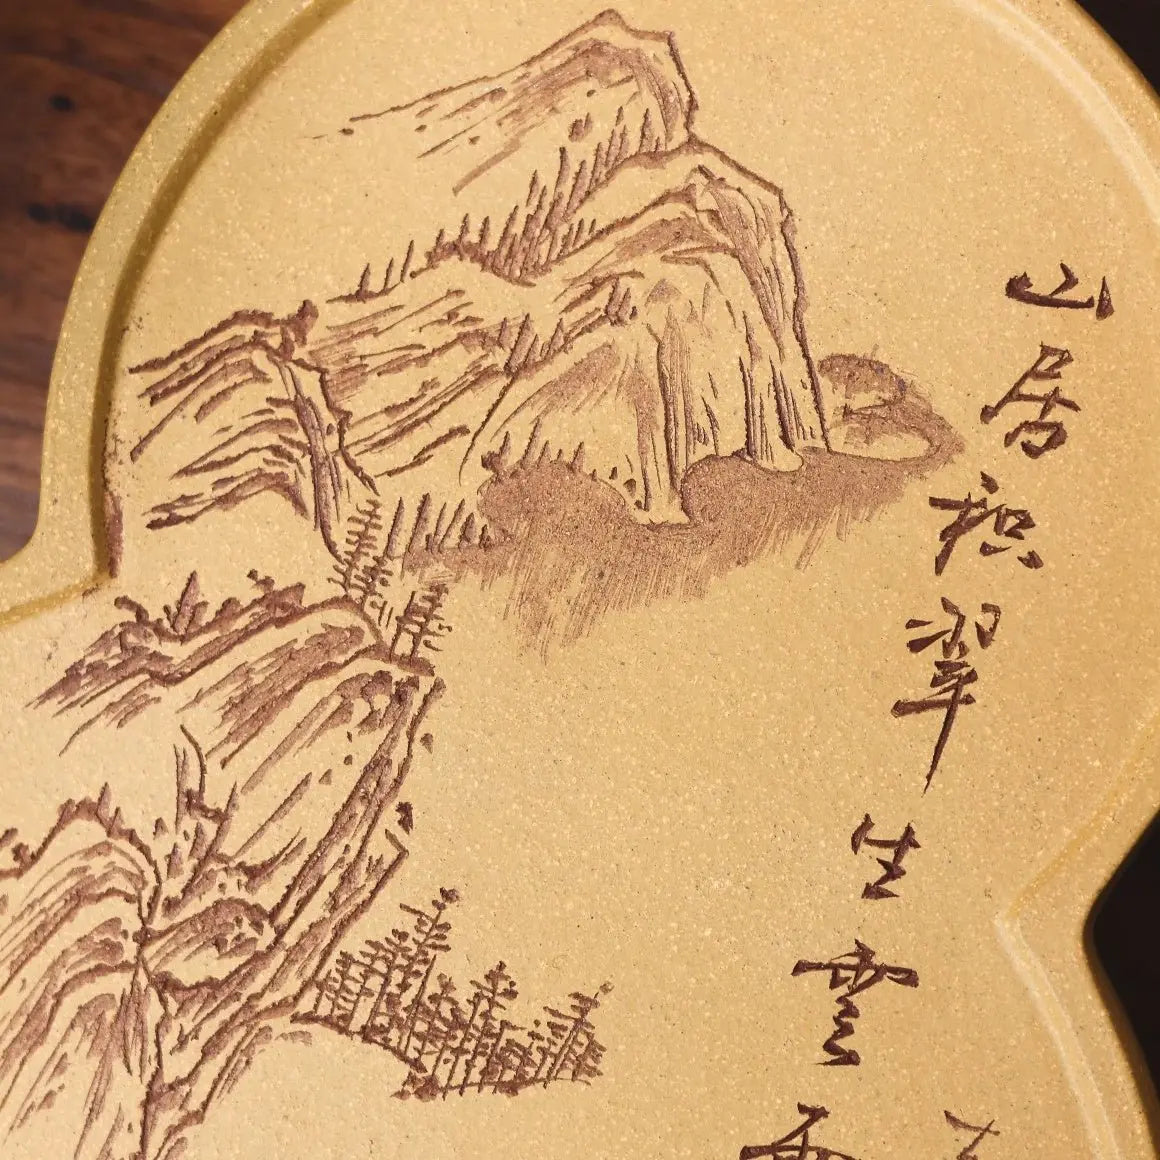 山居积翠生雲